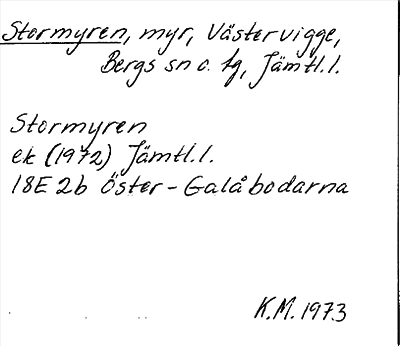 Stormyren, myr, Västervigge,
Bergs sn o. tg, Jämtl.l.
Stormyren
ek (1972) Jämtl.l.
18E 2b Öster-Galåbodarna
K.M. 1973